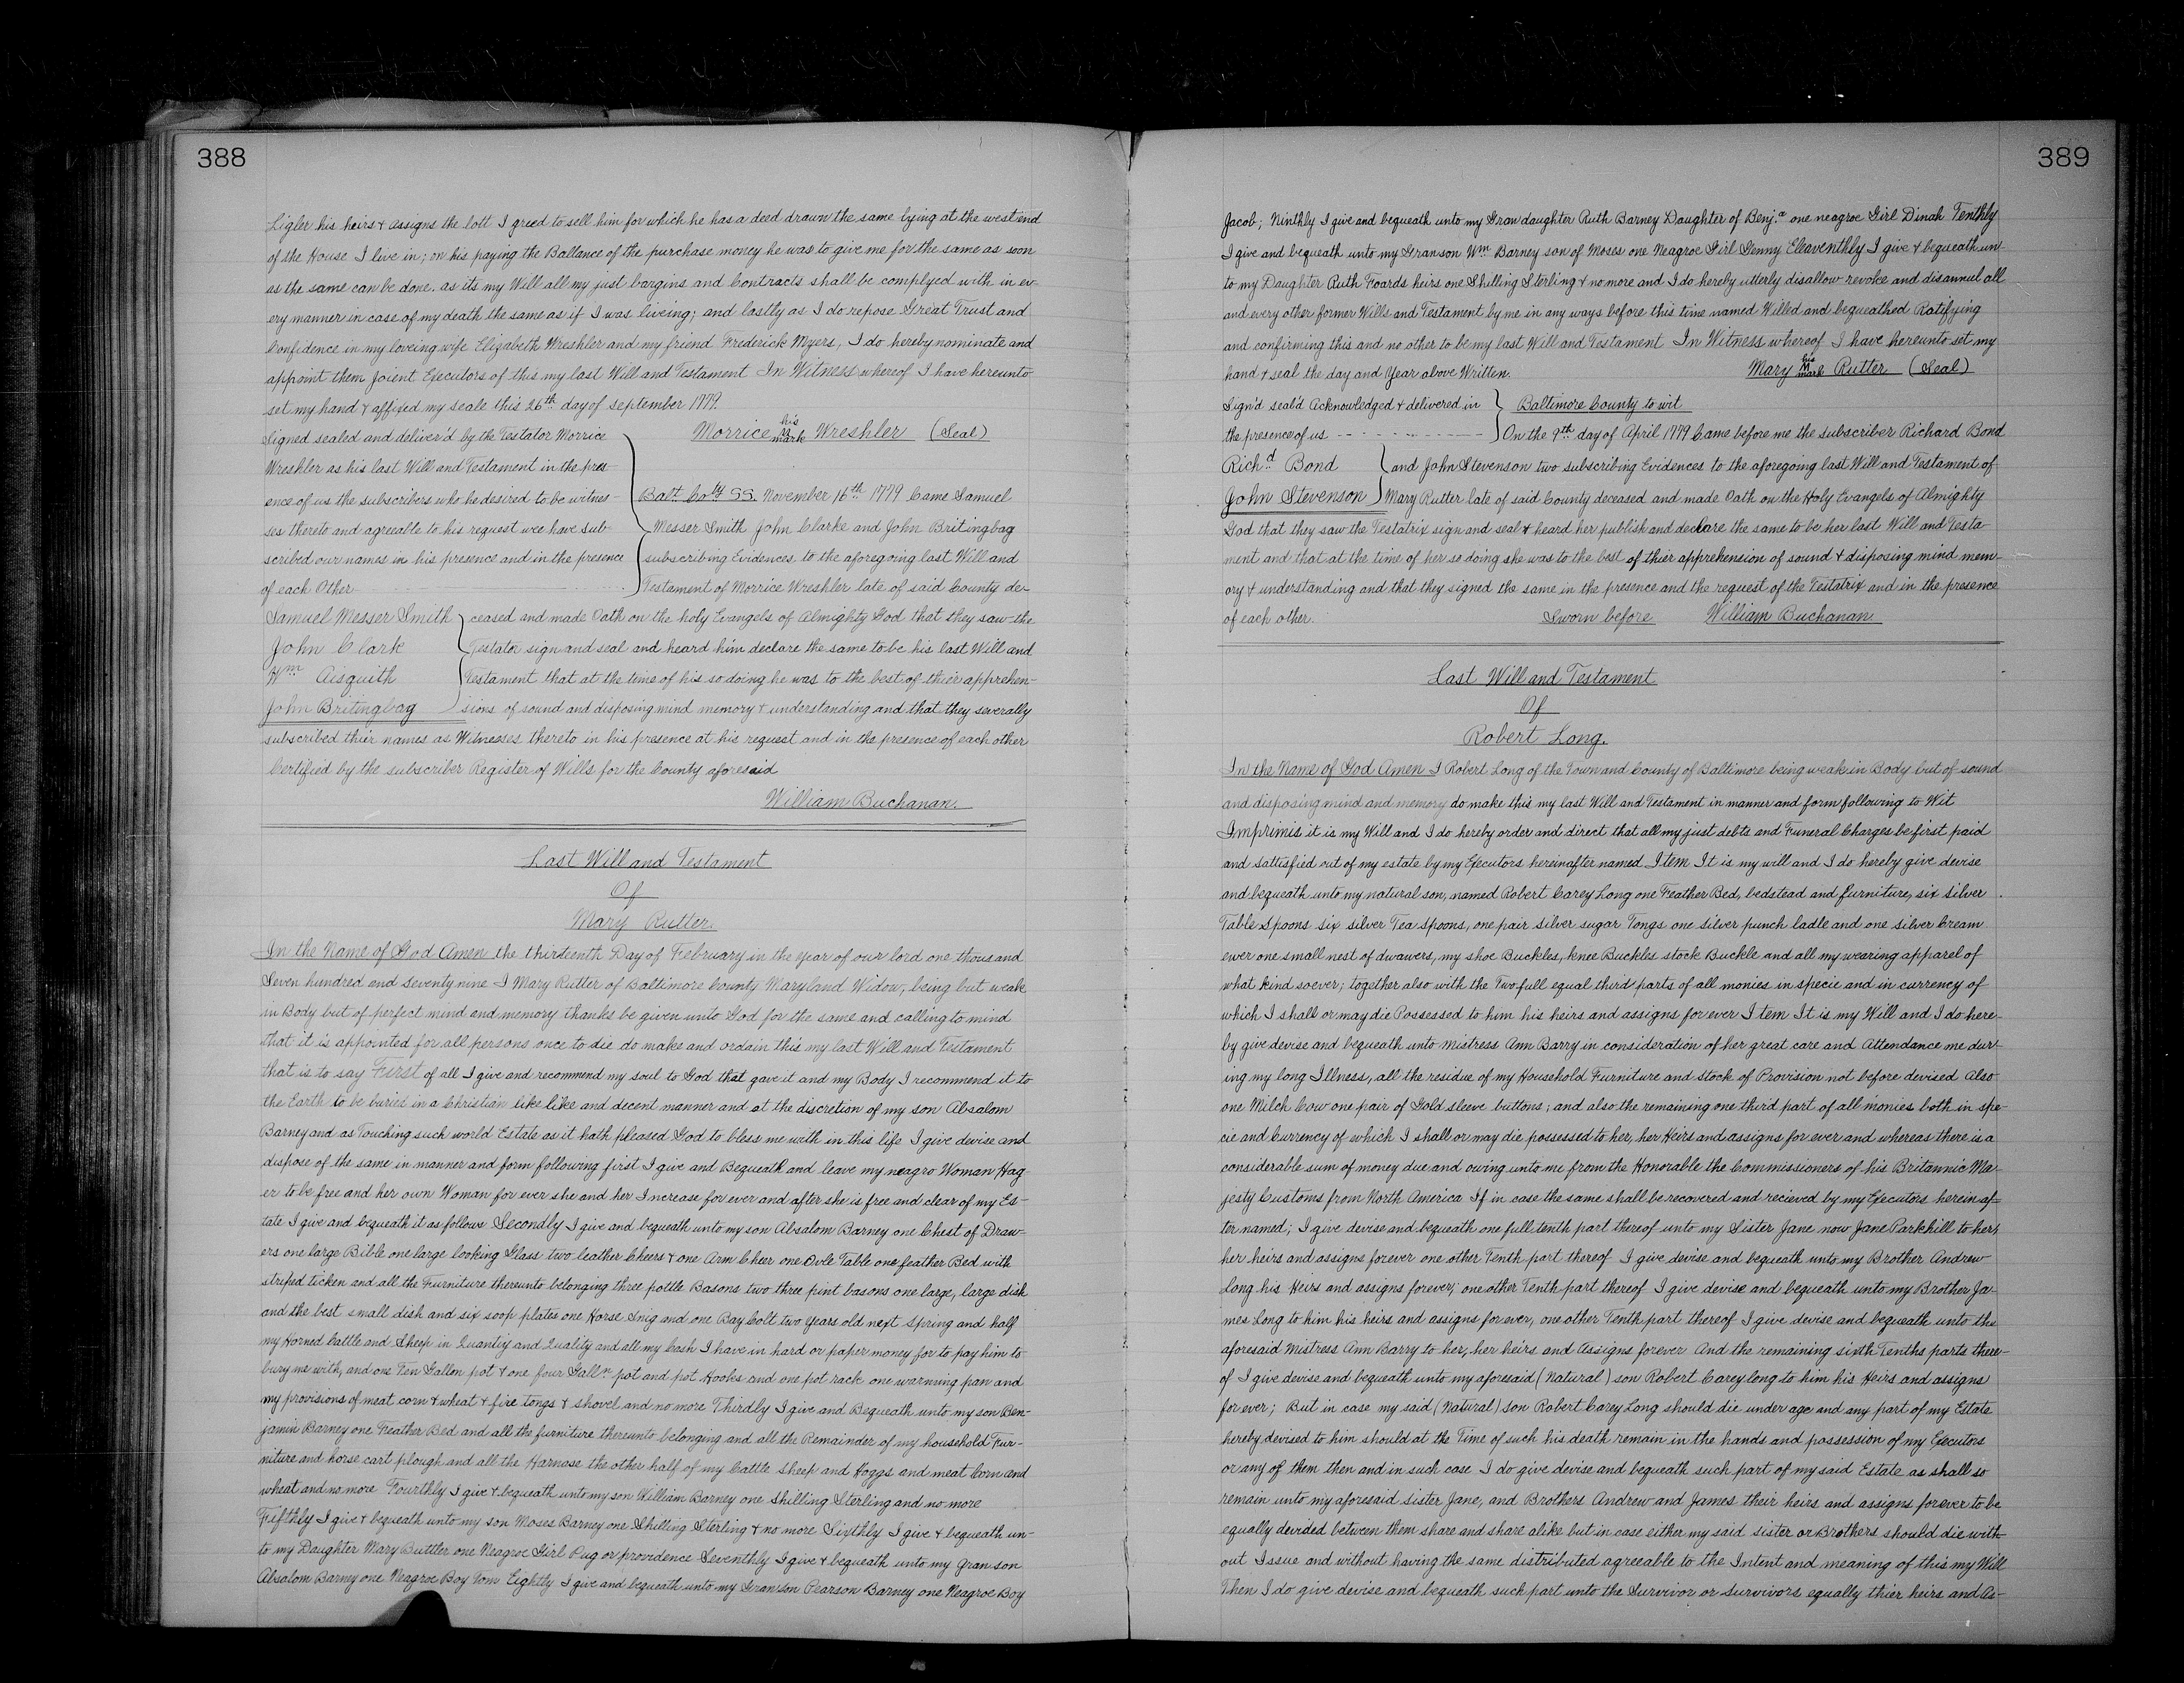 388
Ligler his heirs & assigns the lott I greed to sell him for which he has a deed drawn the same lying at the west end
of the House I live in; on his paying the Ballance of the purchase money he was to give me for the same as soon
as the same can be done. as its my Will all my just bargins and Contracts shall be complyed with in ev-
ery manner in case of my death the same as if I was liveing; and lastly as I do repose Great Trust and
Confidence in my loveing wife Elizabeth Wreshler and my friend Frederick Myers, I do hereby nominate and
appoint them joient Executors of this my last Will and Testament In Witness whereof I have hereunto
set my hand & affixed my seale this 26th day of september 1779.
Signed sealed and deliver'd by the Testator Morrice
Wreshler as his last Will and Testament in the pres-
ence of us the subscribers who he desired to be witnes-
ses thereto and agreable to his request wee have sub-
scribed our names in his presence and in the presence
of each Other
Morrice his mark Wreshler (Seal)
Balt. Coty SS. November 16th 1779 Came Samuel
Messer Smith John Clarke and John Britingbag
subscribing Evidences to the aforegoing last Will and
Testament of Morrice Wreshler late of said County de-
Samuel Messer Smith
John Clark
Wm Aisquith
John Britingbag
ceased and made Oath on the holy Evangels of Almighty God that they saw the
Testator sign and seal and heard him declare the same to be his last Will and
Testament that at the time of his so doing he was to the best of thier apprehen-
sions of sound and disposing mind memory & understanding and that they severally
subscribed thier names as Witnesses thereto in his presence at his request and in the presence of each other
Certified by the subscriber Register of Wills for the County aforesaid
William Buchanan.
Last Will and Testament
Of
Mary Rutter.
In the Name of God Amen the thirteenth Day of February in the year of our lord one thousand
Seven hundred and seventy nine I Mary Rutter of Baltimore County Maryland Widow, being but weak
in Body but of perfect mind and memory thanks be given unto God for the same and calling to mind
that it is appointed for all persons once to die do make and ordain this my last Will and Testament
that is to say First of all I give and recommend my soul to God that gave it and my Body I recommend it to
the Earth to be buried in a Christian like like and decent manner and at the discretion of my son Absalom
Barney and as Touching such world Estate as it hath pleased God to bless me with in this life I give devise and
dispose of the same in manner and form following first I give and Bequeath and leave my neagro Woman Hag
er to be free and her own Woman for ever she and her Increase for ever and after she is free and clear of my Es-
tate I give and bequeath it as follows Secondly I give and bequeath unto my son Absalom Barney one Chest of Draw-
ers one large Bible one large looking Glass two leather Cheers & one Arm Cheer one Ovle Table one feather Bed with
striped ticken and all the Furniture thereunto belonging three pottle Basons two three pint basons one large, large dish
and the best small dish and six soop plates one Horse Snig and one Bay Colt two years old next spring and half
my Horned Cattle and Sheep in Quantiy and Quality and all my Cash I have in hard or paper money for to pay him to
bury me with, and one Ten Gallon pot & one four Galln pot and pot Hooks and one pot rack one warming pan and
my provisions of meat corn & wheat & fire tongs & shovel and no more Thirdly I give and Bequeath unto my son Ben-
jamin Barney one Feather Bed and all the furniture thereunto belonging and all the Remainder of my household Fur-
niture and horse cart plough and all the Harnase the other half of my Cattle Sheep and Hoggs and meat Corn and
wheat and no more Fourthly I give & bequeath unto my son William Barney one Shilling Sterling and no more
Fifthly I give & bequeath unto my son Moses Barney one Shilling Sterling & no more Sixthly I give & bequeath un-
to my Daughter Mary Buttler one Neagroe Girl Pug or providence Seventhly I give & bequeath unto my Gran son
Absalom Barney one Neagroe Boy Tom Eightly I give and bequeath unto my Gran son Pearson Barney one Neagroe Boy
389
Jacob; Ninthly I give and bequeath unto my Gran daughter Ruth Barney Daughter of Benj.a one neagroe Girl Dinah Tenthly
I give and bequeath unto my Granson Wm Barney son of Moses one Neagroe Girl Jenny Eleaventhly I give & bequeath un-
to my Daughter Ruth Foards heirs one Shilling Sterling & no more and I do hereby utterly disallow revoke and disannul all
and every other former Wills and Testament by me in any ways before this time named Willed and bequeathed Ratifying
and confirming this and no other to be my last Will and Testament In Witness whereof I have hereunto set my
hand & seal the day and Year above Written.
Mary his mark Rutter (Seal)
Sign'd seal'd Acknowledged & delivered in
the presence of us
Baltimore County to wit
On the 9th day of April 1779 Came before me the subscriber Richard Bond
Richd Bond
John Stevenson
and John Stevenson two subscribing Evidences to the aforegoing last Will and Testament of
Mary Rutter late of said County deceased and made Oath on the Holy Evangels of Almighty
God that they saw the Testatrix sign and seal & heard her publish and declare the same to be her last Will and Testa-
ment and that at the time of her so doing she was to the best of thier apprehension of sound & disposing mind mem-
ory & understanding and that they signed the same in the presence and the request of the Testatrix and in the presence
of each other.
Sworn before William Buchanan.
Last Will and Testament
Of
Robert Long.
In the Name of God Amen I Robert Long of the Town and County of Baltimore being weak in Body but of sound
and disposing mind and memory do make this my last Will and Testament in manner and form following to Wit
Imprimis it is my Will and I do hereby order and direct that all my just debts and Funeral Charges be first paid
and sattisfied out of my estate by my Executors hereinafter named Item It is my will and I do hereby give devise
and bequeath unto my natural son, named Robert Carey Long one Feather Bed, bedstead and furniture, six silver
Table Spoons six silver Tea spoons, one pair silver sugar Tongs one silver punch ladle and one silver Cream
ewer one small nest of dwawers, my shoe Buckles, knee Buckles stock Buckle and all my wearing apparel of
what kind soever; together also with the Two full equal third parts of all monies in specie and in currency of
which I shall or may die Possessed to him his heirs and assigns for ever Item It is my Will and I do here-
by give devise and bequeath unto mistress Ann Barry in consideration of her great care and Attendance me dur-
ing my long Illness, all the residue of my Household Furniture and stock of Provision not before devised Also
one Milch Cow one pair of Gold sleeve buttons; and also the remaining one third part of all monies both in spe-
cie and Currency of which I shall or may die possessed to her, her Heirs and assigns for ever and whereas there is a
considerable sum of money due and owing unto me from the Honorable the Commissioners of his Britannic Ma-
jesty Customs from North America If in case the same shall be recovered and recieved by my Executors herein af-
ter named; I give devise and bequeath one full tenth part thereof unto my Sister Jane now Jane Parkhill to her,
her heirs and assigns forever one other Tenth part thereof I give devise and bequeath unto my Brother Andrew
Long his Heirs and assigns forever; one other Tenth part thereof I give devise and bequeath unto my Brother Ja-
mes Long to him his heirs and assigns for ever, one other Tenth part thereof I give devise and bequeath unto the
aforesaid Mistress Ann Barry to her, her heirs and Assigns forever And the remaining sixth Tenths parts there-
of I give devise and bequeath unto my aforesaid (Natural) son Robert Carey long to him his Heirs and assigns
for ever; But in case my said (Natural) son Robert Carey Long should die under age and any part of my Estate
hereby devised to him should at the Time of such his death remain in the hands and possession of my Executors
or any of them then and in such case I do give devise and bequeath such part of my said Estate as shall so
remain unto my aforesaid sister Jane, and Brothers Andrew and James their heirs and assigns forever to be
equally devided between them share and share alike but in case either my said sister or Brothers should die with-
out Issue and without having the same distributed agreeable to the Intent and meaning of this my Will
Then I do give devise and bequeath such part unto the Survivor or survivors equally thier heirs and As-